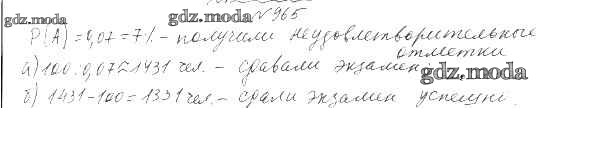 gdz.moda № 965 gdz.moda
P(A) = 0,07 = 7% - получили неудовлетворительные
отметки
а) 100 : 0,07 ≈ 1431 чел. - сдавали экзамен gdz.moda
б) 1431 - 100 = 1331 чел. - сдали экзамен успешно.